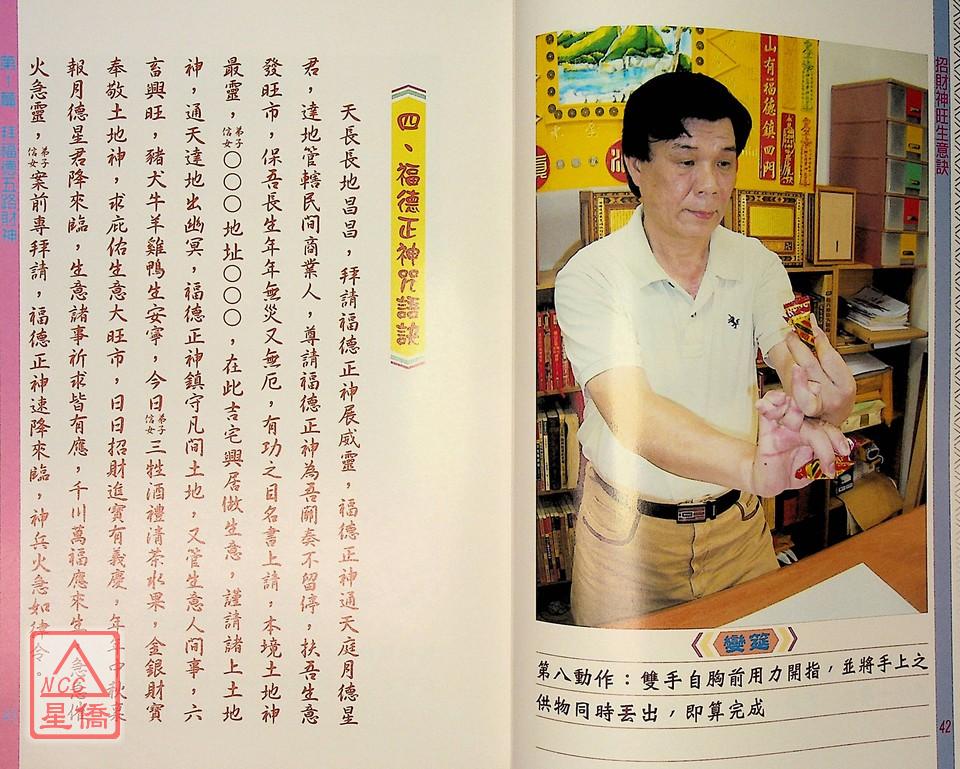 招財神旺生意訣
山有福德鎮四門
變筵
第八動作：雙手自胸前用力開指，並將手上之
供物同時丟出，即算完成
42
四、福德正神咒語訣
天長長地昌昌，拜請福德正神展威靈，福德正神通天庭月德星
君，達地管轄民間商業人，尊請福德正神為吾關奏不留停，扶吾生意
發旺市，保吾長生年年無災又無厄，有功之日名書上請，本境土地神
最靈，弟子信女○○○地址○○○，在此吉宅興居做生意，謹請諸上土地
神，通天達地出幽冥，福德正神鎮守凡間土地，又管生意人間事，六
畜興旺，豬犬牛羊雞鴨生安寧，今日弟子信女三牲酒禮清茶水果，金銀財寶
奉敬土地神，求庇佑生意大旺市，日日招財進寶有義慶，年年
報月德星君降來臨，生意諸事祈求皆有應，千川萬福應來生
火急靈，弟子信女案前專拜請，福德正神速降來臨，神兵火急如律令。
第十篇 拜福德五路財神
NCC
星僑